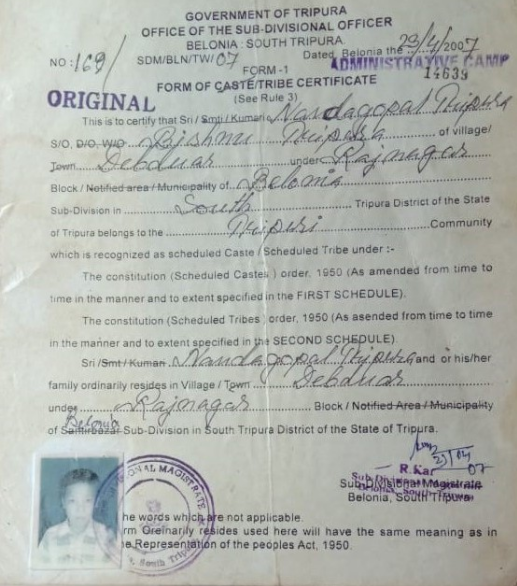 GOVERNMENT OF TRIPURA
OFFICE OF THE SUB-DIVISIONAL OFFICER
BELONIA : SOUTH TRIPURA.
NO : 169/ SDM/BLN/TW/07 Dated, Belonia the 23/4/2007
ADMINISTRATIVE CAMP
FORM -1 14639
FORM OF CASTE/TRIBE CERTIFICATE
ORIGINAL (See Rule 3)
This is to certify that Sri / Smti / Kumari Nandagopal Tripura
S/O, D/O, W/O Rajshmi Tripura of village/
Town Debduar under Rajnagar
Block / Notified area / Municipality of Belonia
Sub-Division in South Tripura District of the State
of Tripura belongs to the Tripuri Community
which is recognized as scheduled Caste / Scheduled Tribe under :-
The constitution (Scheduled Castes) order, 1950 (As amended from time to
time in the manner and to extent specified in the FIRST SCHEDULE).
The constitution (Scheduled Tribes) order, 1950 (As asended from time to time
in the manner and to extent specified in the SECOND SCHEDULE)
Sri /Smt / Kumari Nandagopal Tripura and or his/her
family ordinarily resides in Village / Town Debduar
under Rajnagar Block / Notified Area / Municipality
Belonia
of Santirbazar Sub-Division in South Tripura District of the State of Tripura.
23/04
07
R. Kar
Sub-Divisional Magistrate
Belonia, South Tripura
IONAL MAGISTRATE
South Trip
he words which are not applicable.
rm Oreinarily resides used here will have the same meaning as in
e Representation of the peoples Act, 1950.